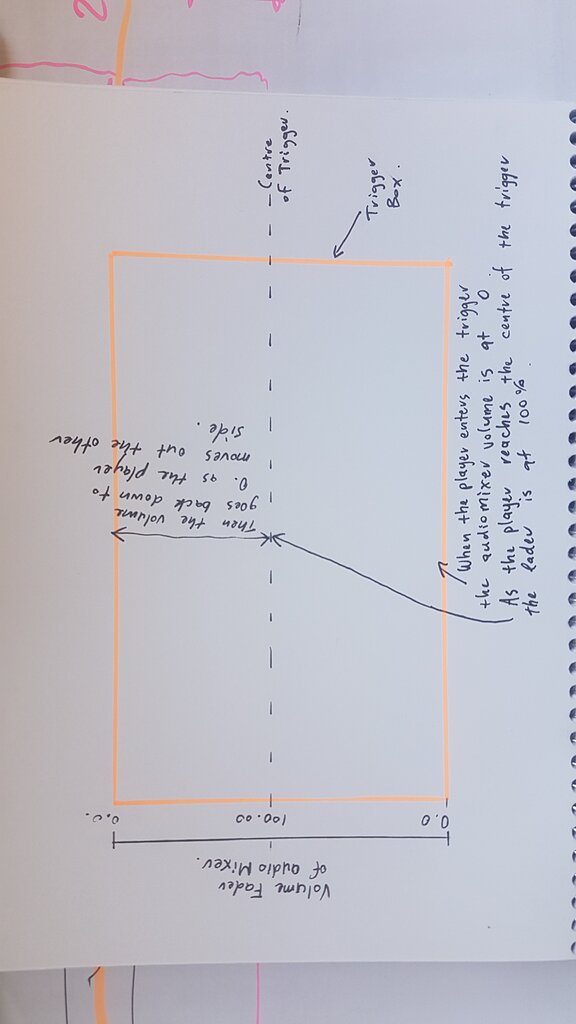 Centre
of Trigger.
Trigger
Box.
When the player enters the trigger
the audiomixer volume is at 0
As the player reaches the centre of the trigger
the fader is at 100%.
Then the volume
goes back down to
0. as the player
moves out the other
side.
0.0.
100.00
0.0
Volume Fader
of audio Mixer.
2